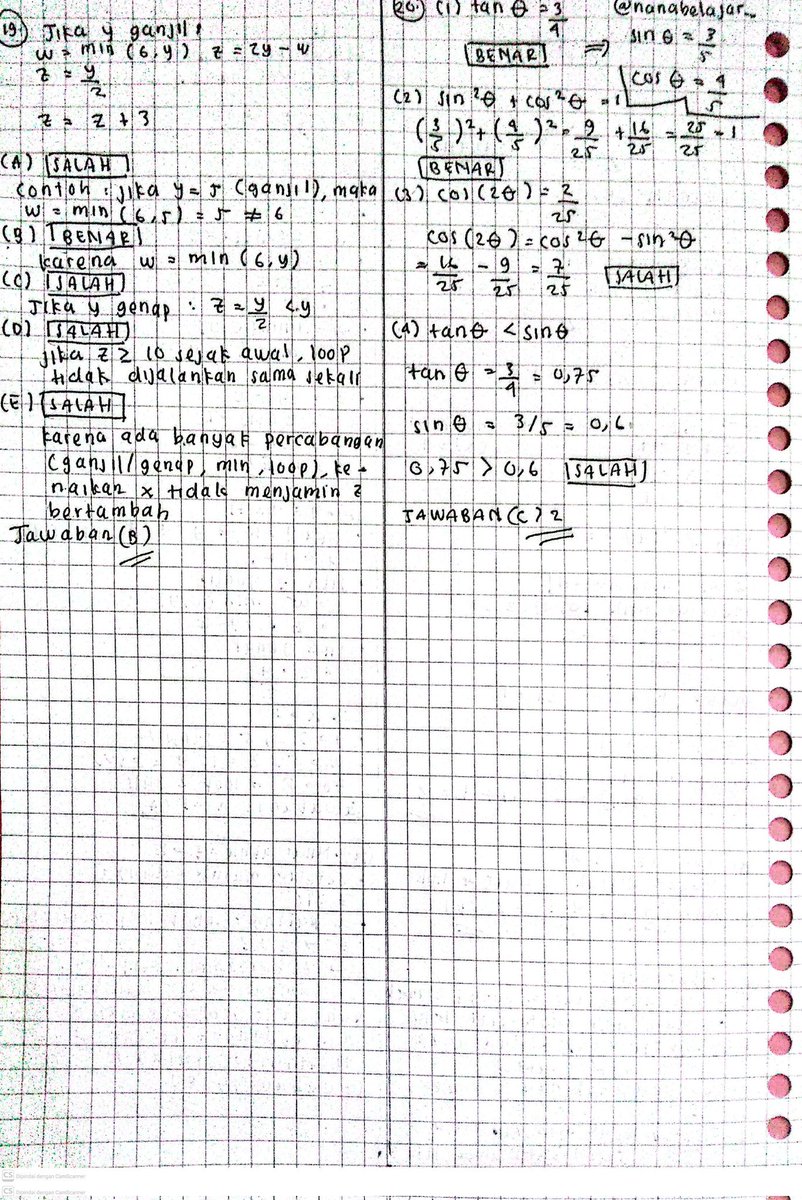 19. Jika y ganjil:
w = min (6,y) z = 2y - w
z = y/2
z = z + 3
(A) SALAH
contoh : jika y = 5 (ganjil), maka
w = min (6,5) = 5 ≠ 6
(B) BENAR
karena w = min (6,y)
(C) SALAH
Jika y genap : z = y/2 < y
(D) SALAH
jika z ≥ 10 sejak awal, loop
tidak dijalankan sama sekali
(E) SALAH
karena ada banyak percabangan
(ganjil/genap, min, loop), ke-
naikan x tidak menjamin z
bertambah
Jawaban (B)
@nanabelajar...
20. (1) tan θ = 3/4
BENAR ⇒ sin θ = 3/5
cos θ = 4/5
(2) sin²θ + cos²θ = 1
(3/5)² + (4/5)² = 9/25 + 16/25 = 25/25 = 1
BENAR
(3) cos (2θ) = 2/25
cos (2θ) = cos²θ - sin²θ
= 16/25 - 9/25 = 7/25 SALAH
(4) tan θ < sin θ
tan θ = 3/4 = 0,75
sin θ = 3/5 = 0,6
0,75 > 0,6 SALAH
JAWABAN (C) 2
CS Dipindai dengan CamScanner
CS Dipindai dengan CamScanner